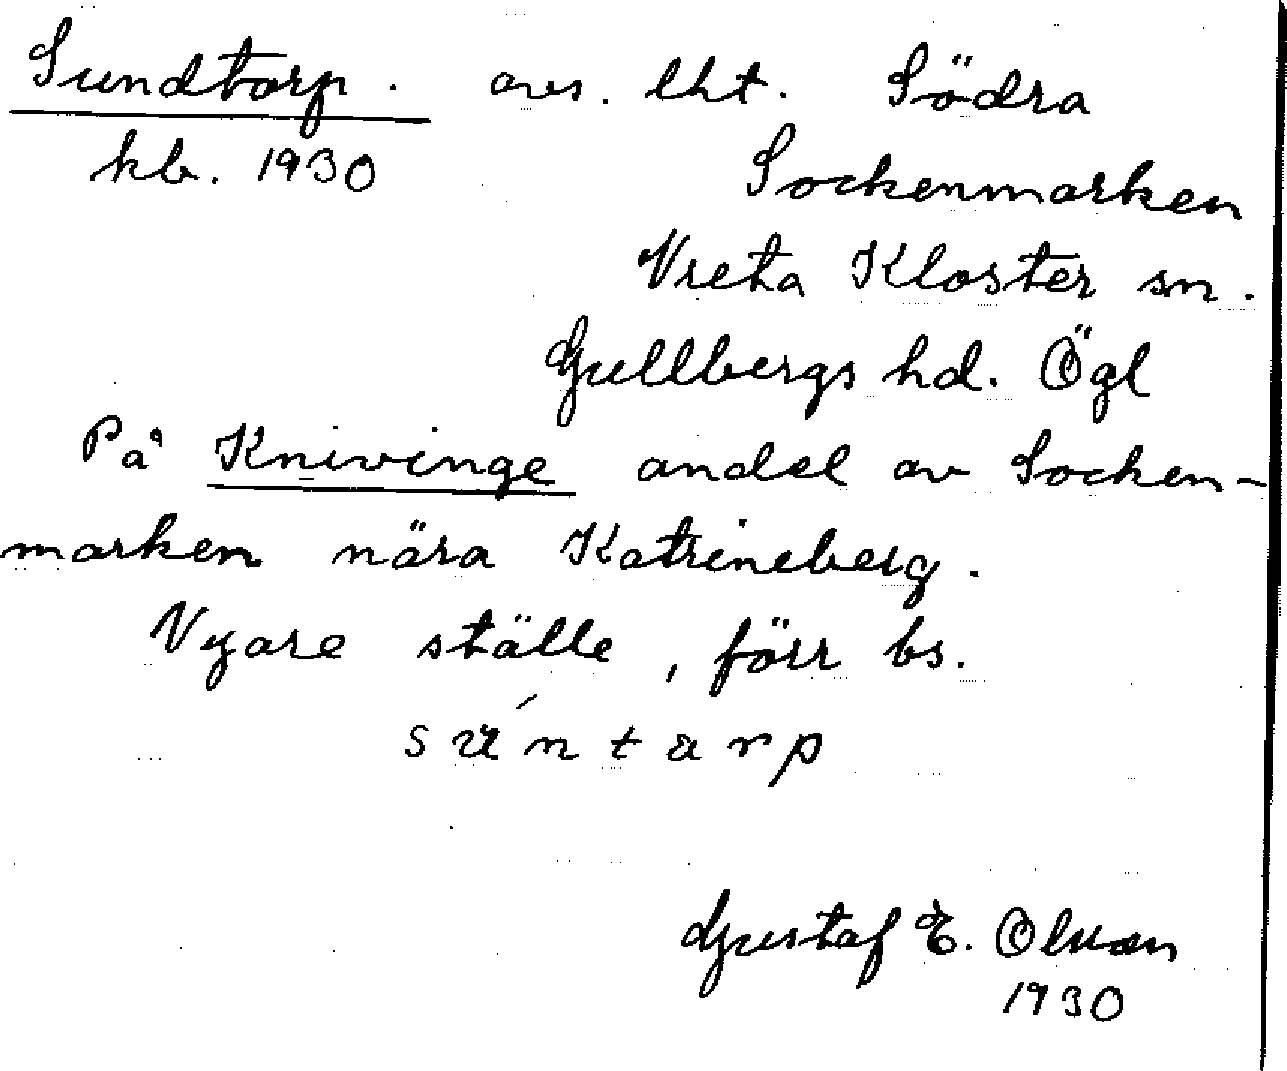 Sundtorp. avs. lht. Södra
kb. 1930
Sockenmarken
Vreta Kloster sn.
Gullbergs hd. Ögl
På Knivinge andel av Socken-
marken nära Katrineberg.
Nyare ställe, förr bs.
súntarp
Gustaf E. Olsson
1930